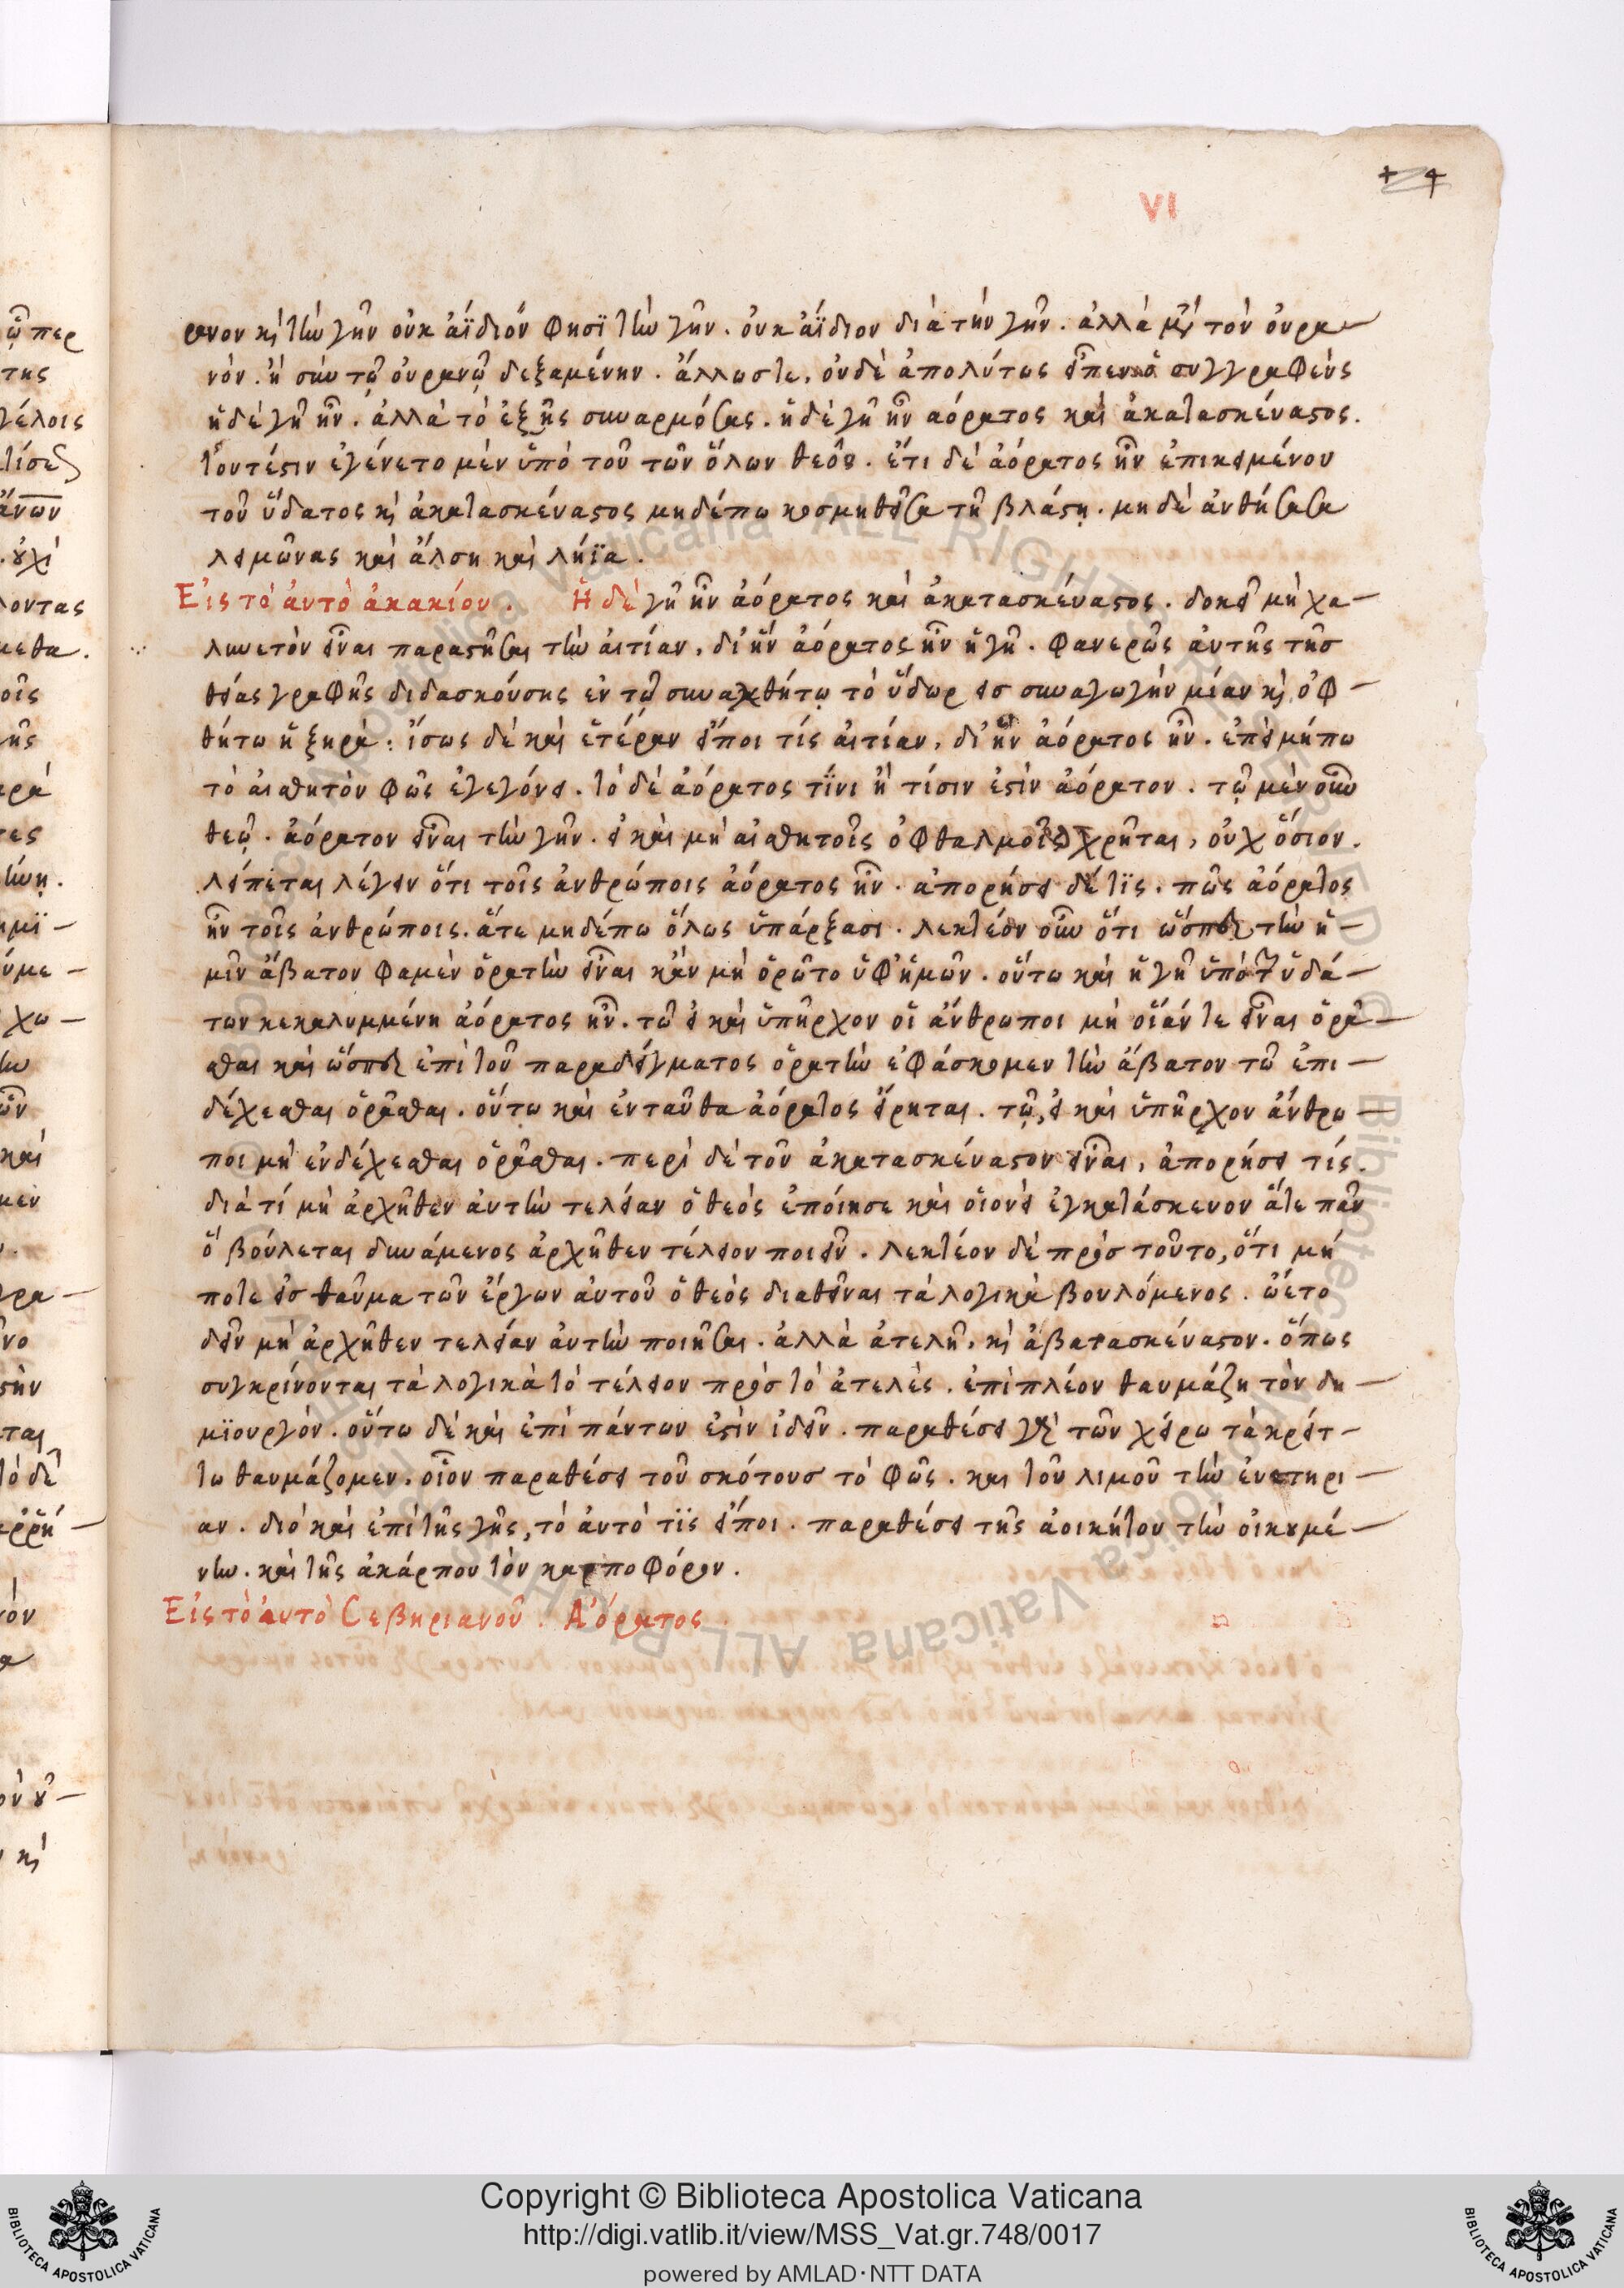 +4
VI
ρανον κ τὴν γῆν οὐκ ἀΐδιον φησϊ τὴν γῆν . οὐκ ἀΐδιον διὰ τὴν γῆν . ἀλλὰ μετὰ τὸν οὐρα—
νόν . ἢ σὺν τῷ οὐρανῷ δεξαμένην . ἄλλως τε , οὐδὲ ἀπολύτως εἶπεν ὁ συγγραφεὺς
ἡ δὲ γῆ ἦν . ἀλλὰ τὸ ἑξῆς συναρμόσας . ἡ δὲ γῆ ἦν αόρατος καὶ ἀκατασκέυαστος .
τουτέστιν ἐγένετο μὲν ὑπὸ τοῦ τῶν ὅλων θεοῦ . ἔτι δὲ ἀόρατος ἦν ἐπικειμένου
τοῦ ὕδατος κ ἀκατασκέυαστος μηδέπω κοσμηθεῖσα τῇ βλάστῃ . μηδὲ ἀνθήσασα
λειμῶνας καὶ ἄλση καὶ λήϊα .
Εἰς τὸ ἀυτὸ ἀκακίου . Ἡ δὲ γῆ ἦν ἀόρατος καὶ ἀκατασκέυαστος . δοκεῖ μὴ χα—
λεπὸν εἶναι παραστῆσαι τὴν ἀιτίαν , δι ἣν ἀόρατος ἦν ἡ γῆ . φανερῶς ἀυτῆς τῆσ
θείας γραφῆς διδασκούσης ἐν τῷ συναχθήτω τὸ ὕδωρ εἰσ συναγωγὴν μίαν κ ὀφ—
θήτω ἡ ξηρὰ : ἴσως δὲ καὶ ἑτέραν εἴποι τίς ἀιτίαν , δι ἣν ἀόρατος ἦν . ἐπεὶ μήπω
τὸ αἰσθητὸν φῶς ἐγεγόνει . τὸ δὲ ἀόρατος τΐνι ἢ τίσιν ἐστὶν ἀόρατον . τῷ μὲν οὖν
θεῷ . ἀόρατον εἶναι τὴν γῆν . εἰ καὶ μὴ αἰσθητοῖς ὀφθαλμοῖς χρῆται , οὐχ ὅσιον .
λείπεται λέγειν ὅτι τοῖς ἀνθρώποις ἀόρατος ἦν . ἀπορήσει δέ τϊς . πῶς ἀόρατος
ἦν τοῖς ἀνθρώποις . ἅτε μηδέπω ὅλως ὑπάρξασι . λεκτέον οὖν ὅτι ὥσπερ τὴν ἡ—
μῖν ἄβατον φαμὲν ὁρατὴν εἶναι κἂν μὴ ὁρῷτο ὑφ' ἡμῶν . οὕτω καὶ ἡ γῆ ὑπὸ τῶν ὑδά—
των κεκαλυμμένη ἀόρατος ἦν . τῶ εἰ καὶ ὑπῆρχον οἱ ἄνθρωποι μὴ οἵαν τε εἶναι ὁρᾶ—
σθαι καὶ ὥσπερ ἐπὶ τοῦ παραδείγματος ὁρατὴν ἐφάσκομεν τὴν ἄβατον τῶ ἐπι—
δέχεσθαι ὁρᾶσθαι . οὕτω καὶ ἐνταῦθα ἀόρατος εἴρηται . τῷ , εἰ καὶ ὑπῆρχον ἄνθρω—
ποι μὴ ἐνδέχεσθαι ὁρᾶσθαι . περὶ δὲ τοῦ ἀκατασκέυαστον εἶναι , ἀπορήσει τίς .
διὰ τί μὴ ἀρχῆθεν ἀυτὴν τελείαν ὁ θεὸς ἐποίησε καὶ οἱονεὶ ἐγκατάσκευον ἅτε πᾶν
ὃ βούλεται δυνάμενος ἀρχῆθεν τέλειον ποιεῖν . λεκτέον δὲ πρὸσ τοῦτο , ὅτι μή
ποτε εἰσ θαῦμα τῶν ἔργων ἀυτοῦ ὁ θεὸς διαθεῖναι τὰ λογικὰ βουλόμενος . ὤετο
δεῖν μὴ ἀρχῆθεν τελείαν ἀυτὴν ποιῆσαι . ἀλλὰ ἀτελῆ , κ ἀβατασκέυαστον . ὅπως
συγκρίνονται τὰ λογικὰ τὸ τέλειον πρὸσ τὸ ἀτελὲς . ἐπὶ πλέον θαυμάζῃ τὸν δη—
μϊουργόν . οὕτω δὲ καὶ ἐπὶ πάντων ἐστὶν ἰδεῖν . παραθέσει γὰρ τῶν χείρω τὰ κρείτ—
τω θαυμάζομεν . οἷον παραθέσει τοῦ σκότουσ τὸ φῶς . και τοῦ λιμοῦ τὴν ἐυετηρι—
αν . διὸ καὶ ἐπὶ τῆς γῆς , τὸ ἀυτὸ τϊς εἴποι . παραθέσει τῆς ἀοικήτου τὴν οἰκουμέ—
νην . καὶ τῆς ἀκάρπου τὸν καρποφόρον .
Εἰς τὸ ἀυτὸ Σεβηριανοῦ . Ἀόρατος
Copyright © Biblioteca Apostolica Vaticana
http://digi.vatlib.it/view/MSS_Vat.gr.748/0017
powered by AMLAD·NTT DATA
BIBLIOTECA APOSTOLICA VATICANA
BIBLIOTECA APOSTOLICA VATICANA